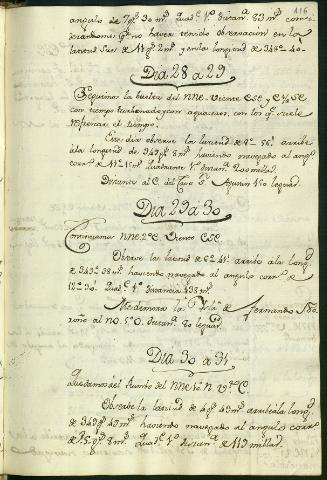 116
angulo de 79g.s 30 m.s quad.e 1.º distan.a 83 m.s consi
derandome p.r no haver tenido observacion en la
latitud Sur de 11g.s 2m.s y en la longitud de 348º 40
Dia 28 a 29
Seguimos la buelta del NNE. Viento ESE y E¼SE
con tiempo turbonado y con aguaceros, con los q.e suele
refrescar el tiempo.
Este dia observe la latitud de 8º 56' arribe
a la longitud de 349g.s 8m.s haviendo navegado al ang.o
corr.o de 11º 15m.s quadrante 1.º distan.a 120 millas.
Distante al C. del Cavo S.n Agustin 150 leguas.
Dia 29 a 30
Continuamos NNE 2º E. Viento ESE.
Observe la latitud de 6º 41' arribe a la long.d
de 349º 38 m.s haviendo navegado al angulo corr.o de
12º 30' quad.e 1.º distancia 138 m.s
Me demora la Ysla de Fernando No
roño al NO. 5º O. distan.a 80 leguas.
Dia 30 a 31
quedamos el rumbo del NNE
Observe la latitud de 4g.s 49 m.s arribe a la long.d
de 349g.s 49 m.s haviendo navegado al angulo corr.o
de 15g.s 8m.s quad.e 1.º distan.a 113 millas.